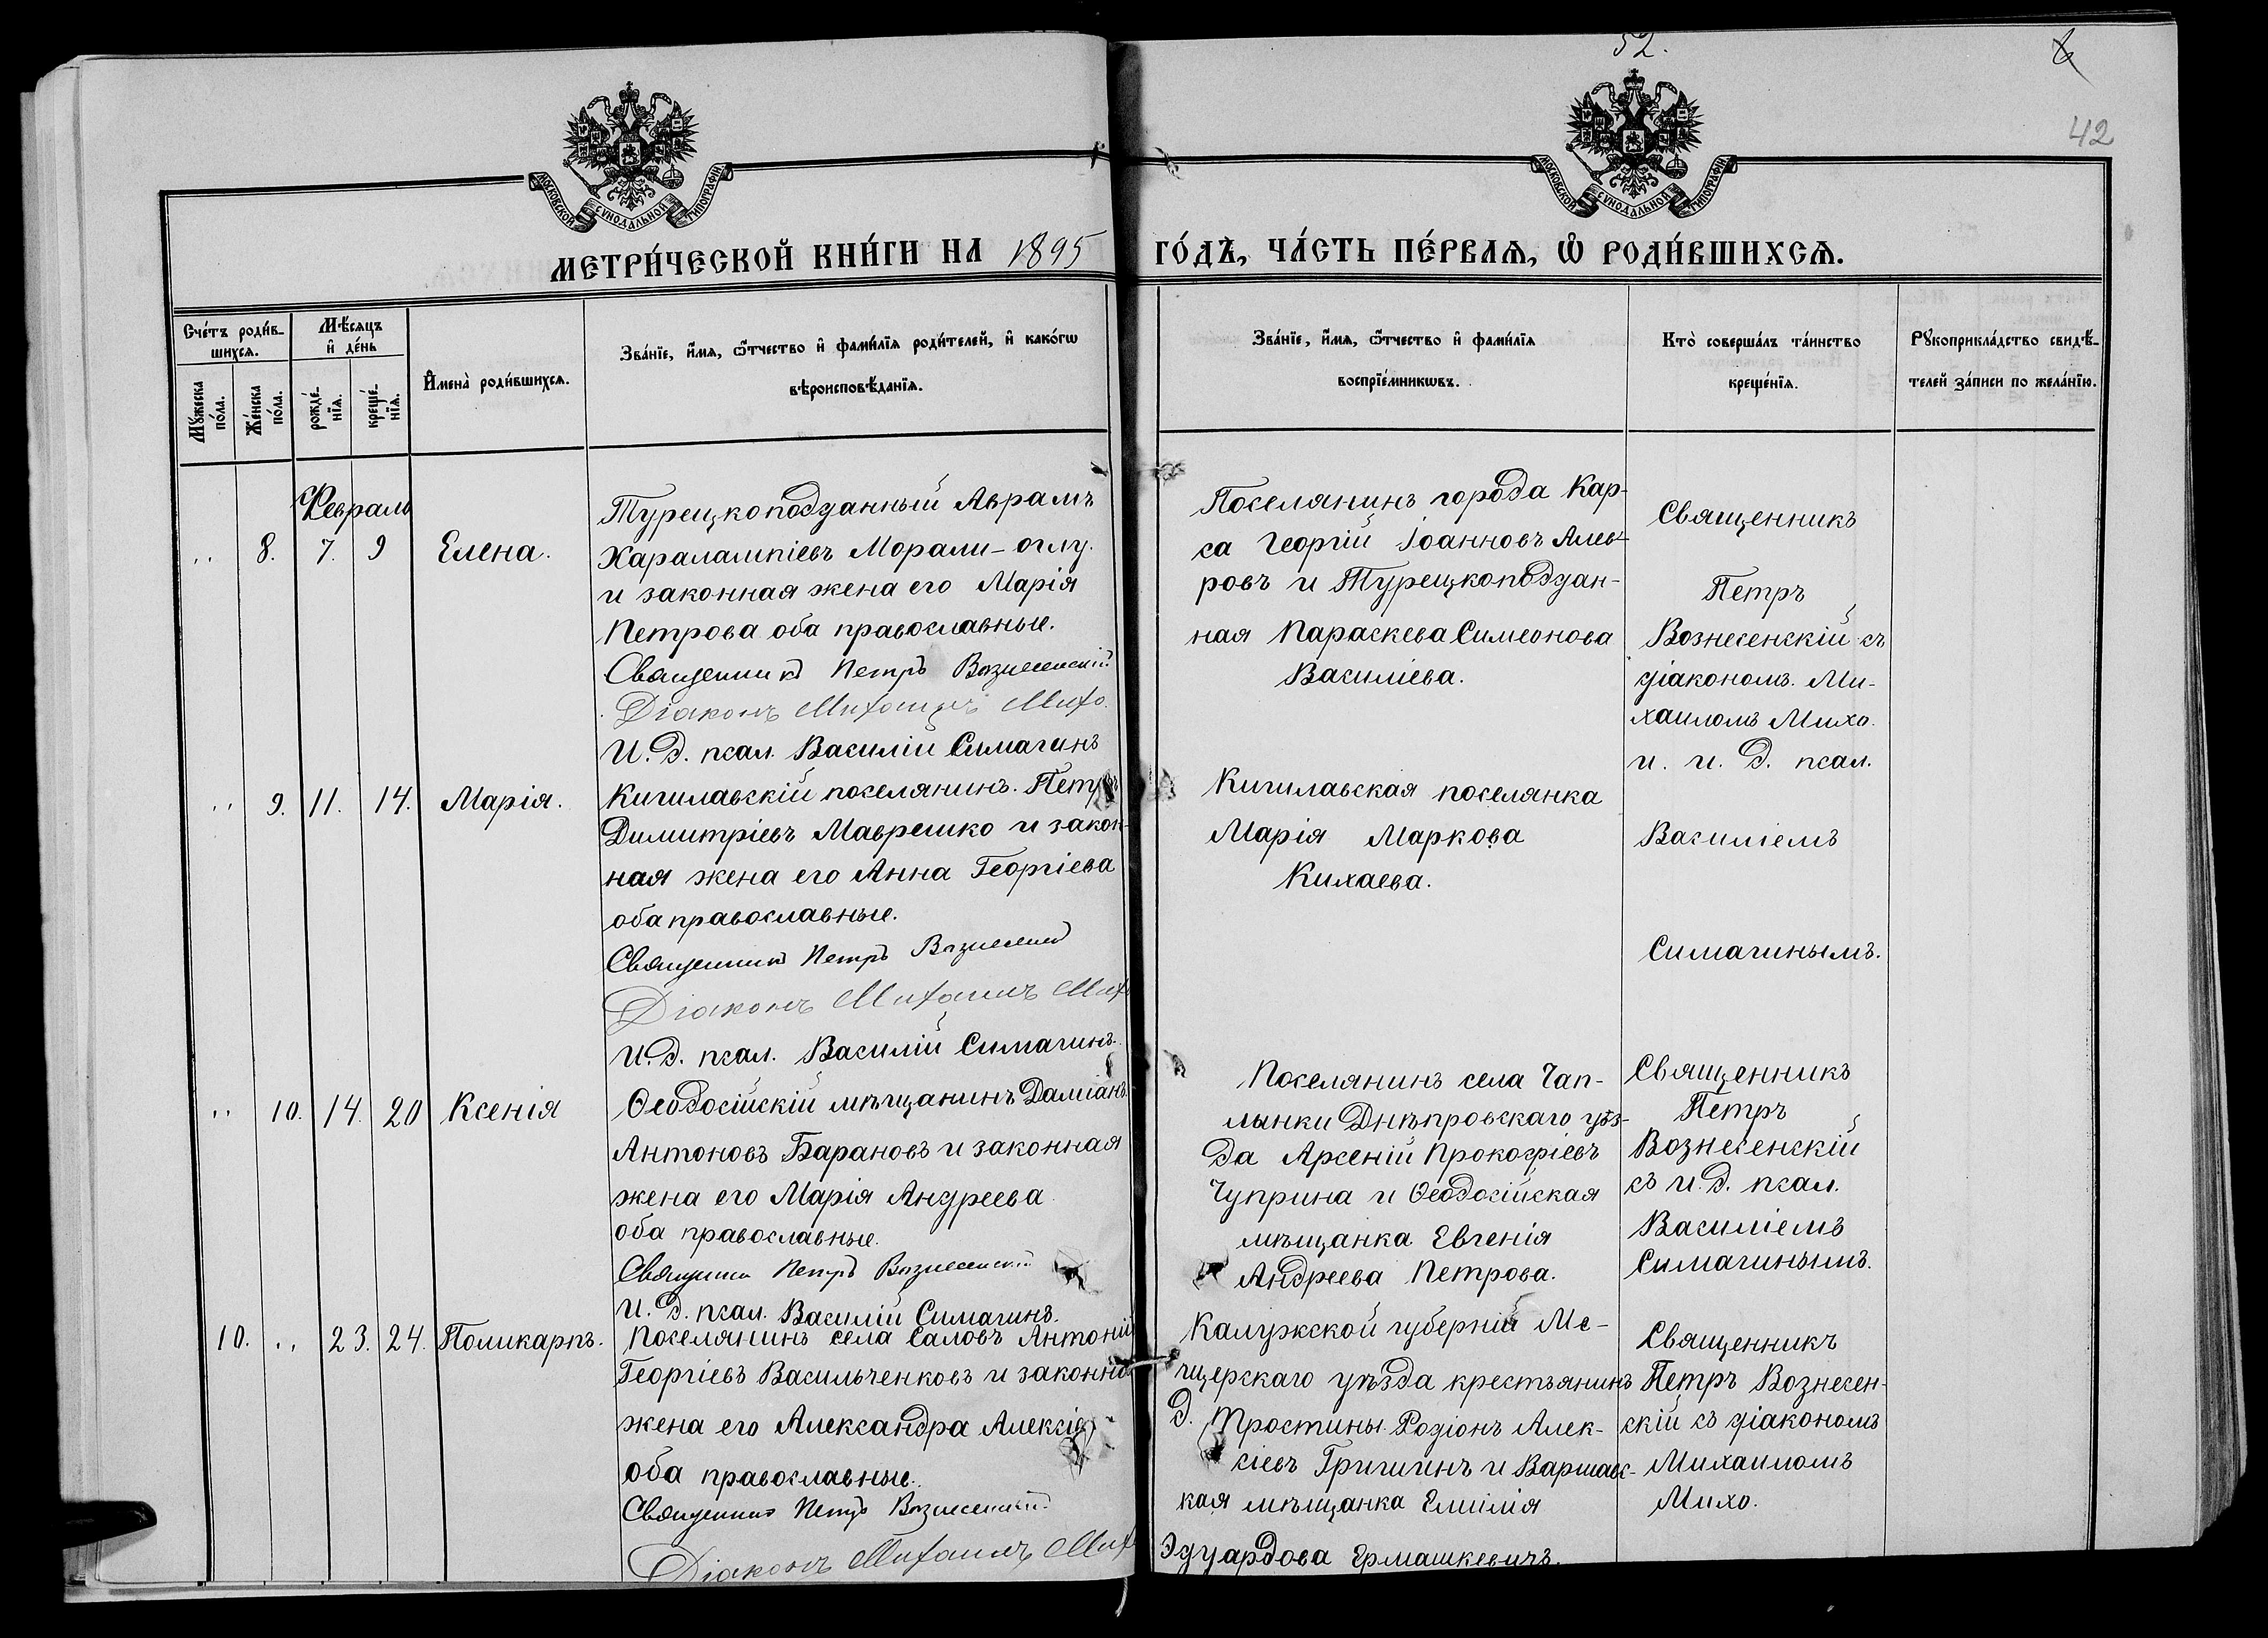 52.
6
42
МОСКОВСКОЙ СУНОДАЛЬНОЙ ТИПОГРАФІИ
МОСКОВСКОЙ СУНОДАЛЬНОЙ ТИПОГРАФІИ
МЕТРИ́ЧЕСКОЙ КНИ́ГИ НА 1895 ГО́ДЪ, ЧА́СТЬ ПЕ́РВАѦ, Ѡ҆ РОДИ́ВШИХСѦ.
Сче́тъ роди́в-
шихсѧ.
Мꙋ́жеска по́ла.
Же́нска по́ла.
Мѣ́сѧцъ
и҆ де́нь
рожде́-
нїѧ.
креще́-
нїѧ.
И҆мена̀ роди́вшихсѧ.
Зва́нїе, и҆́мѧ, ѻ҆́тчество и҆ фами́лїѧ роди́телей, и҆ како́гѡ
вѣроисповѣ́данїѧ.
Зва́нїе, и҆́мѧ, ѻ҆́тчество и҆ фами́лїѧ
воспрїе́мникѡвъ.
Кто̀ соверша́лъ та́инство
креще́нїѧ.
Рꙋкоприкла́дство свидѣ́-
телей за́писи по жела́нїю.
Февраль
„ 8. 7. 9 Елена.
Турецкоподданный Аврамъ
Харалампіевъ Морали-оглу.
и законная жена его Марія
Петрова оба православные.
Священникъ Петръ Вознесенскій
Діаконъ Михаилъ Михо.
И. д. псал. Василій Симагинъ
Поселянинъ города Кар-
са Георгій Іоанновъ
ровъ и Турецкоподдан-
ная Параскева Симеонова
Василіева.
Священникъ
Петръ
Вознесенскій съ
діакономъ Ми-
хаиломъ Михо.
и. и. д. псал.
Василіемъ
Симагинымъ.
„ 9. 11. 14. Марія.
Кигилавскій поселянинъ Петръ
Димитріевъ Маврешко и закон-
ная жена его Анна Георгіева
оба православные.
Священникъ Петръ Вознесенскій
Діаконъ Михаилъ Михо
И. д. псал. Василій Симагинъ.
Кигилавская поселянка
Марія Маркова
Кихаева.
„ 10. 14. 20 Ксенія
Ѳеодосійскій мѣщанинъ Даміанъ
Антоновъ Барановъ и законная
жена его Марія Андреева
оба православные.
Священникъ Петръ Вознесенскій
И. д. псал. Василій Симагинъ.
Поселянинъ села Чап-
лынки Днѣпровскаго уѣз-
да Арсеній Прокофіевъ
Чуприна и Ѳеодосійская
мѣщанка Евгенія
Андреева Петрова.
Священникъ
Петръ
Вознесенскій
съ и. д. псал.
Василіемъ
Симагинымъ.
10. „ 23. 24. Поликарпъ.
Поселянинъ села Саловъ Антоній
Георгіевъ Васильченковъ и законна
жена его Александра Алексіе
оба православные.
Священникъ Петръ Вознесенскій
Діаконъ Михаилъ Михо
Калужской губерніи Ме-
щерскаго уѣзда крестьянинъ
д. Тростины Родіонъ Алек-
сіевъ Гришинъ и Варшавс-
кая мѣщанка Емилія
Эдуардова Ермашкевичъ.
Священникъ
Петръ Вознесен-
скій съ діакономъ
Михаиломъ
Михо.